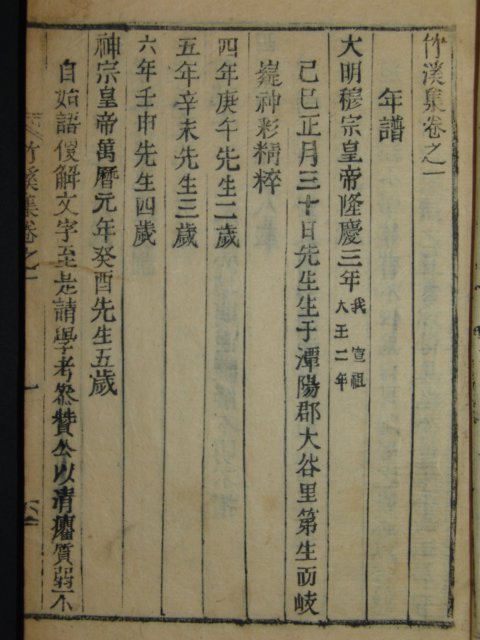 竹溪集卷之一
年譜
大明穆宗皇帝隆慶三年我 宣祖大王二年
己巳正月三十日先生生于潭陽郡大谷里第生而岐
嶷神彩精粹
四年庚午先生二歲
五年辛未先生三歲
六年壬申先生四歲
神宗皇帝萬曆元年癸酉先生五歲
自始語便解文字至是請學考叅贊公以淸癯質弱不
竹溪集卷之一
一